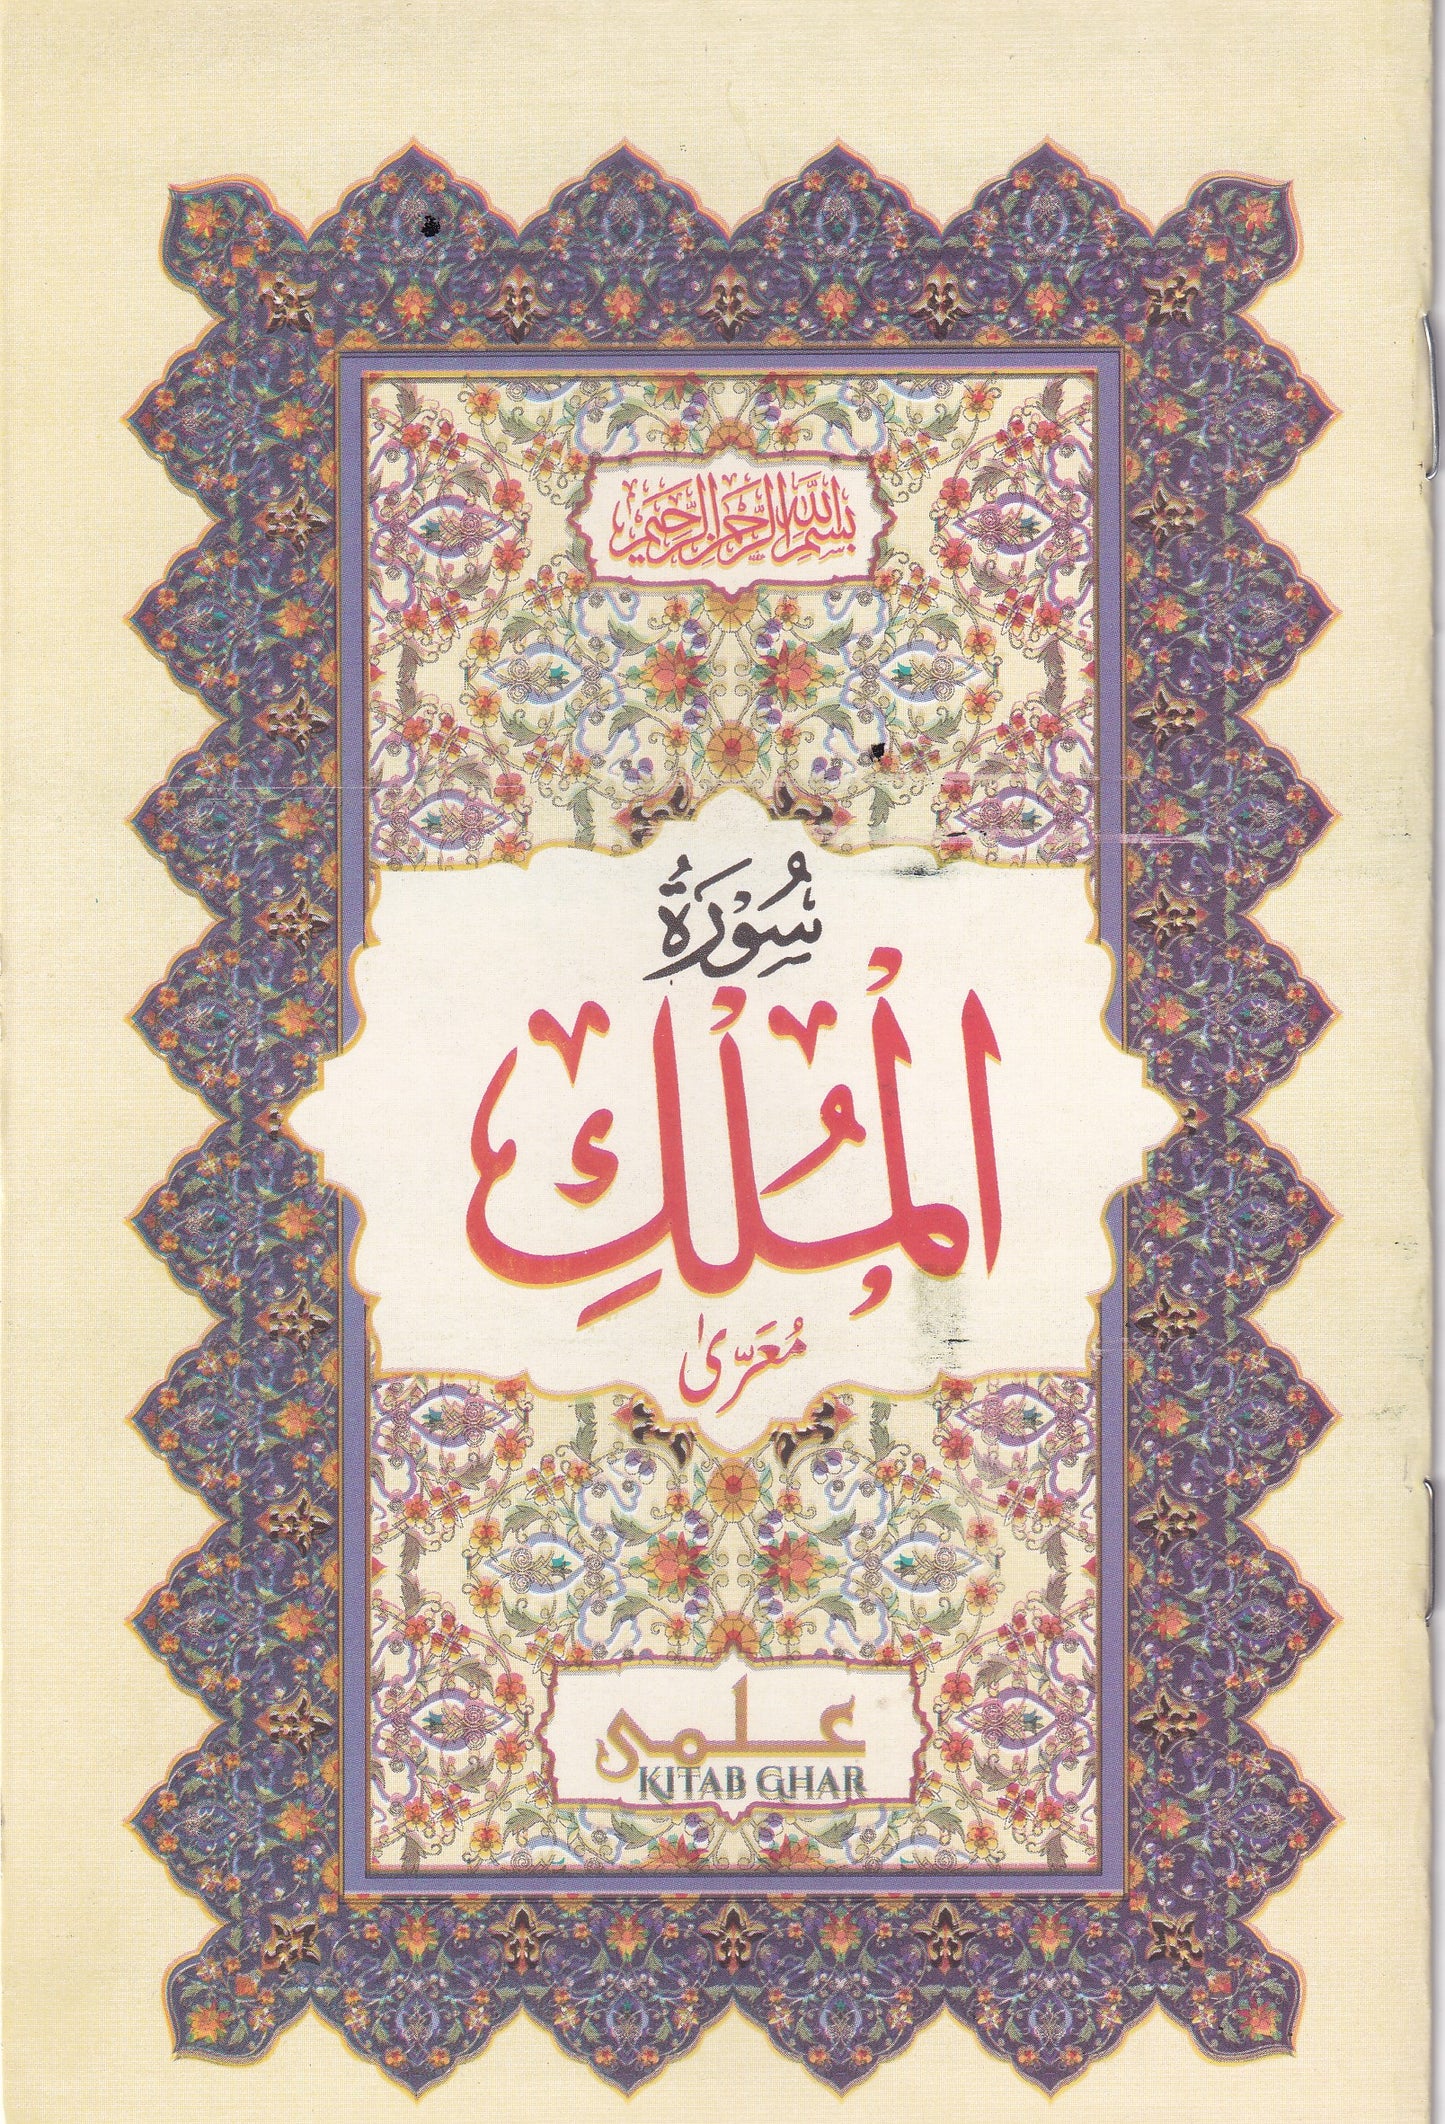 بِسْمِ اللهِ الرَّحْمٰنِ الرَّحِيْمِ
سُوْرَةُ
الْمُلْكِ
مُعَرّٰی
علمی
KITAB GHAR